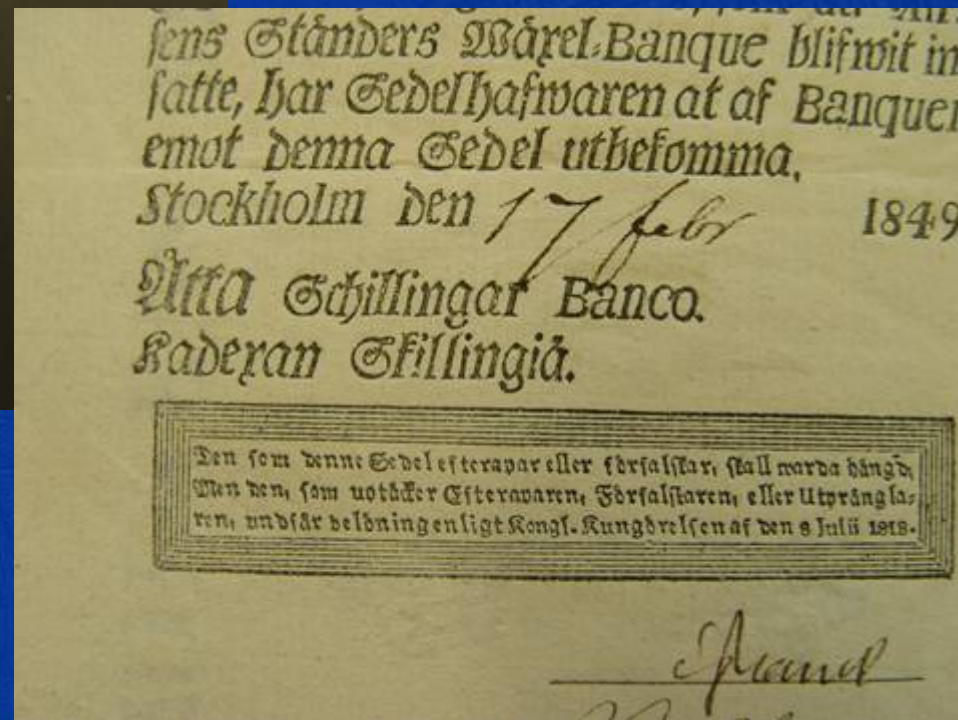 sens Ständers Wäxel-Banque blifwit in
satte, har Sedelhafwaren at af Banquen
emot denna Sedel utbekomma.
Stockholm den 17 febr 1849
Åtta Schillingar Banco.
Kadexan Skillingiä.
Den som denne Sedel efterapar eller förfalskar, skall warda hängd;
Men den, som uptäcker Efteraparen, Förfalskaren, eller Utprångla-
ren, undfår belöning enligt Kongl. Kungörelsen af den 8 Julii 1818.